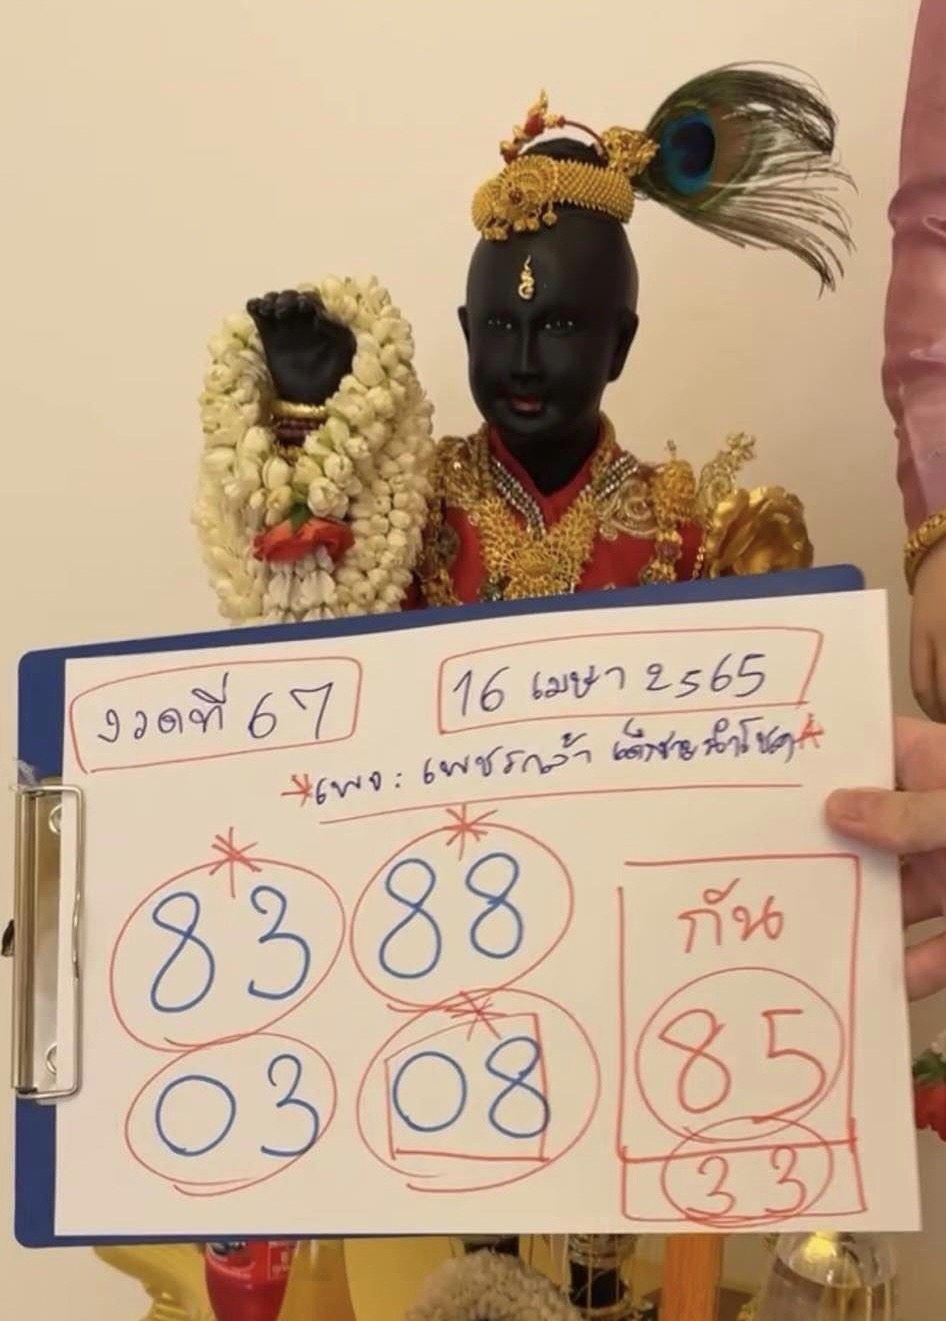 งวดที่ 67
16 เมษา 2565
*เพจ : เพชรกล้า เด็กชายนำโชค*
83 88
03 08
กัน
85
33